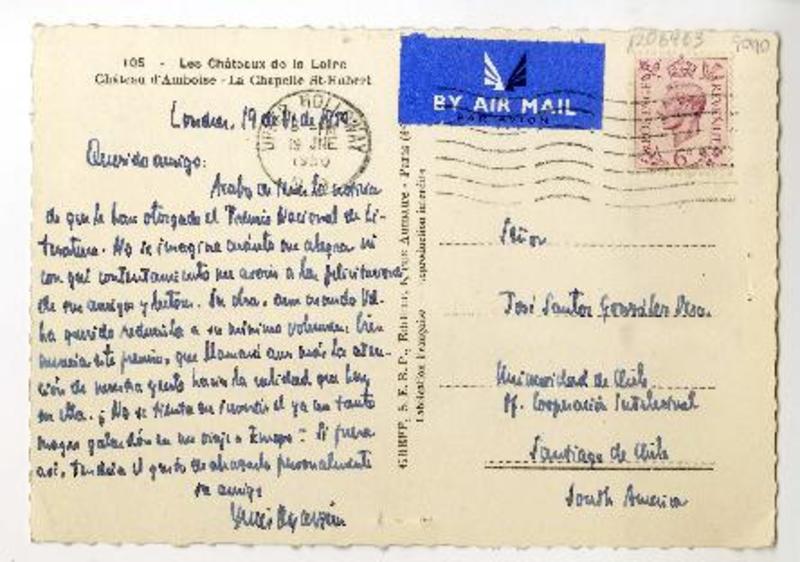 105 - Les Châteaux de la Loire
Château d'Amboise - La Chapelle St-Hubert
Londres, 19 de de 1950
Querido amigo:
Acabo de la noticia
de que le han otorgado el Premio Nacional de Li-
teratura. No se imagina cuánto me alegra ni
con qué contentamiento me a las felicitaciones
de sus amigos y lectores. Su obra, aun cuando Ud.
ha querido reducirla a su mínimo volumen, bien
merecía este premio, que llamará aun más la aten-
ción de nuestra gente hacia la calidad que hay
en ella. ¿No se tienta en invertir el ya un tanto
magro galardón en un viaje a Europa? Si fuera
así, tendría el gusto de abrazarlo personalmente
su amigo
HOLLOWAY
19 JNE
1950
BY AIR MAIL
PAR AVION
POSTAGE
REVENUE
6D
Señor
José Santos González Vera
Universidad de Chile
Of. Cooperación Intelectual
Santiago de Chile
South America
Fabrication Française
reproduction interdite